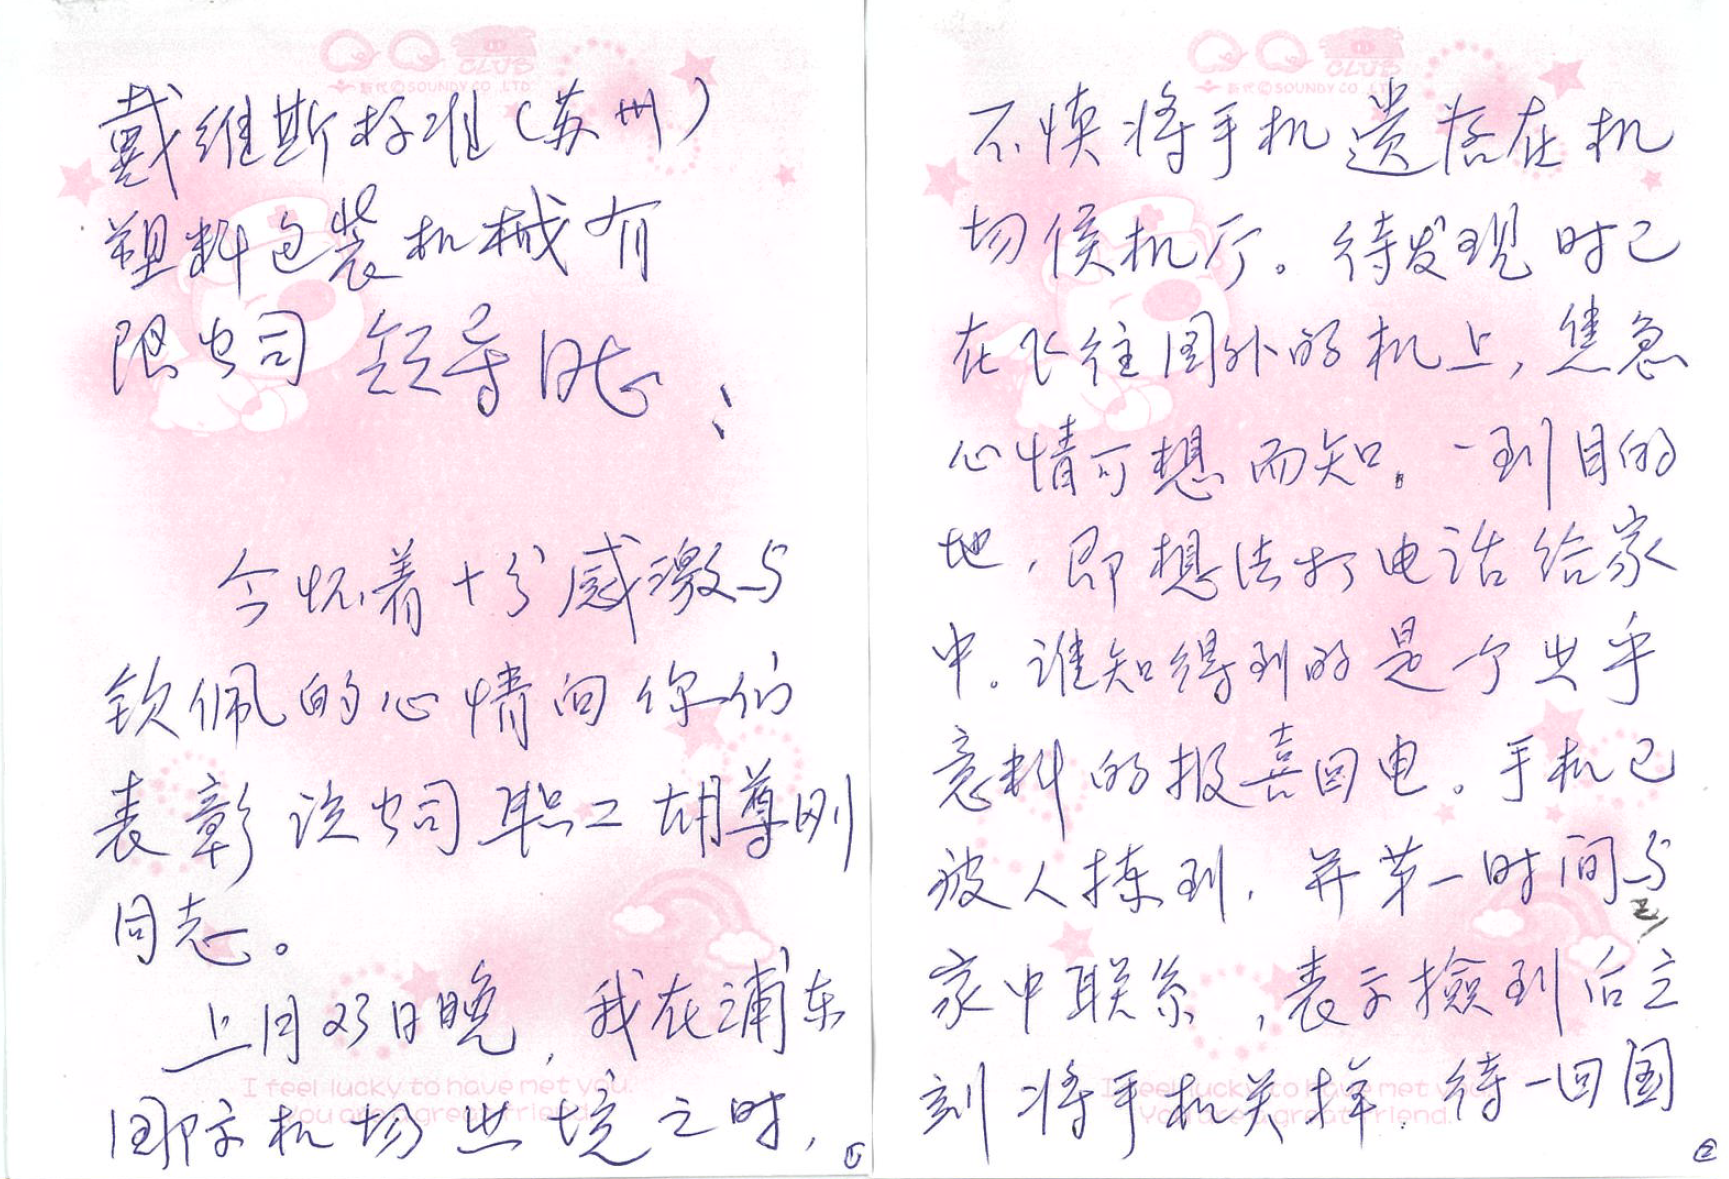 QQ CLUB
SOUNDY CO.,LTD
戴维斯标准(苏州)
塑料包装机械有
限公司 领导同志:
今怀着十分感激与
钦佩的心情向你们
表彰该公司职工胡尊刚
同志。
上月23日晚,我在浦东
国际机场出境之时,
I feel lucky to have met you.
You are a great friend.
①
QQ CLUB
SOUNDY CO.,LTD
不慎将手机遗落在机
场候机厅。待发现时已
在飞往国外的机上,焦急
心情可想而知。一到目的
地,即想法打电话给家
中。谁知得到的是一个出乎
意料的报喜回电。手机已
被人拣到,并第一时间与
家中联系,表示捡到后立
刻将手机关掉。待一回国
I feel lucky to have met you.
You are a great friend.
②